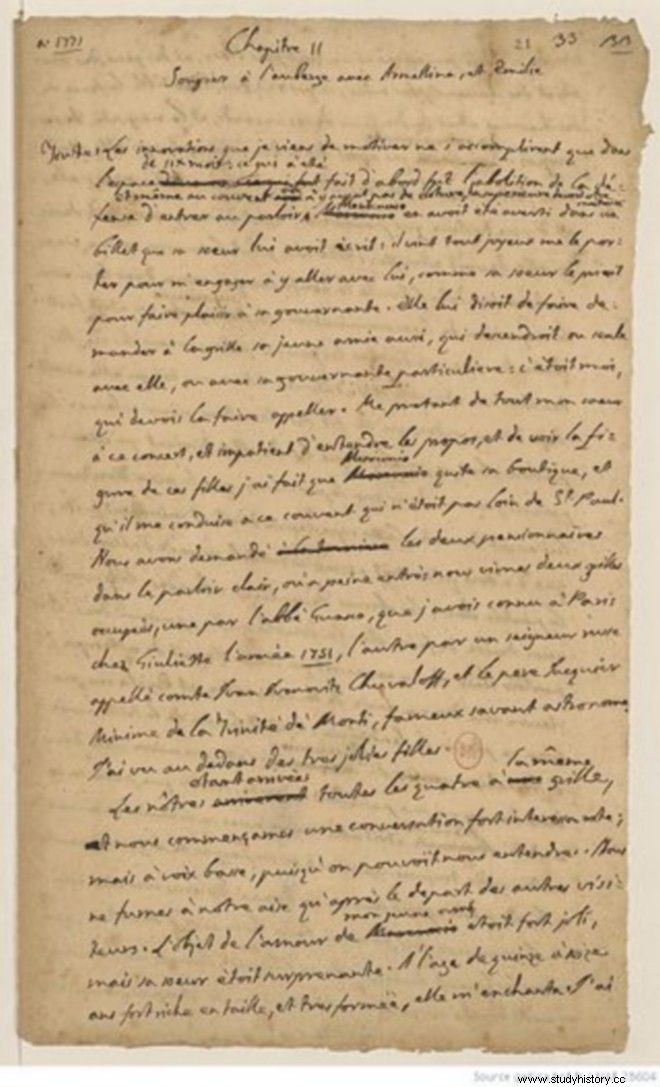 an 1771 Chapitre II 21 33 313
Souper à l'auberge avec Armelline, et Emilie
Toutes les innovations que je viens de motiver ne s'accomplirent que dans
de six mois; ce qui a été
l'espace fut fait d'abord fut l'abolition de la dé=
et même au couvent n'y ayant pas de cloture, la superieure
fense d'entrer au parloir. en avoit été averti dans un
billet que sa sœur lui avoit écrit: il vint tout joyeux me le por=
ter pour m'engager à y aller avec lui, comme sa sœur le
pour faire plaisir à sa gouvernante. Elle lui disoit de faire de=
mander à la grille sa jeune amie aussi, qui descendroit ou seule
avec elle, ou avec sa gouvernante particuliere: c'étoit moi,
qui devois la faire appeller. Me pretant de tout mon cœur
à ce concert, et impatient d'entendre les propos, et de voir la fi=
Menicuccio
gure de ces filles j'ai fait que quite sa boutique, et
qu'il me conduise à ce couvent qui n'étoit pas loin de St Paul.
Nous avons demandé les deux pensionnaires
dans le parloir clair, où à peine entrés nous vimes deux grilles
occupées, une par l'abbé Guasco, que j'avois connu à Paris
chez Giuliette l'année 1751, l'autre par un seigneur russe
appellé comte Ivan Ivanovitz Chuvaloff, et le pere Jacquier
Minime de la Trinité de Monti, fameux savant astronome.
J'ai vu au dedans des tres jolies filles.
étant arrivées la même
Les nôtres arriverent toutes les quatre à grille,
et nous commençames une conversation fort interessante;
mais à voix basse, puisqu'on pouvoit nous entendre. Nous
ne fumes à notre aise qu'après le depart des autres visi=
mon jeune ami
teurs. L'objet de l'amour de étoit fort joli,
mais sa sœur étoit surprenante. A l'age de quinze à seize
ans fort riche en taille, et tres formée, elle m'enchanta. J'ai
Source gallica.bnf.fr
www.studyhistory.cc